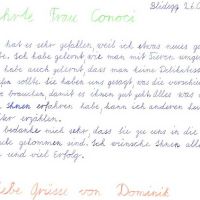 Blidegg 26.
ehrte Frau Conoci
hat es sehr gefallen, weil ich etwas neues ge
be. Ich habe gelernt wie man mit Tieren umge
habe auch gelernt, dass man keine Delikatess
sollte. Sie haben uns gesagt, was die verschie
brauchen, damit es ihnen gut geht. Alles was
Ihnen erfahren habe, kann ich anderen
iter erzählen.
bedanke mich sehr, dass Sie zu uns in die
de gekommen sind. Ich wünsche Ihnen alle
und viel Erfolg.
iebe Grüsse von Dominik